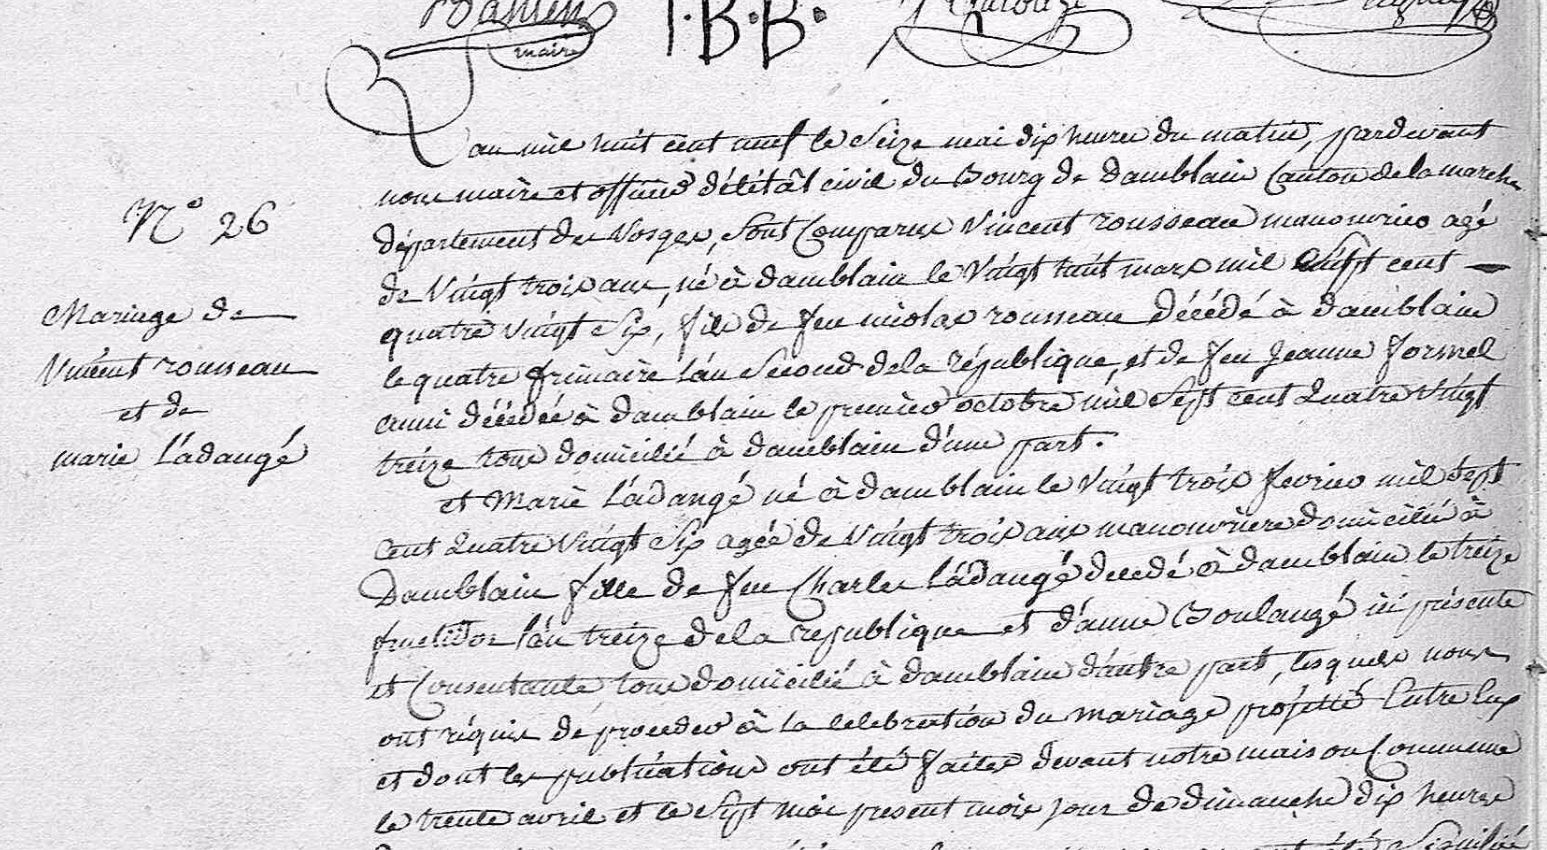 maire
J.B.B.
N° 26
Mariage de
Vincent rousseau
et de
marie Ládangé
L'an mil huit cent neuf le Seize mai dix heures du matin, pardevant
nous maire et officier d'élétât civil du Bourg de damblain Canton de la marche
département des Vosges, Sont Comparus Vincent rousseau manouvrier agé
de Vingt trois ans, né à damblain le Vingt huit mars mil Sept cent
quatre Vingt Six, fils de feu nicolas rousseau décédé à damblain
le quatre frimaire l'an Second de la république, et de feu jeanne formel
aussi décédée à damblain le premier octobre mil Sept cent quatre Vingt
treize tous domicilié à damblain d'une part.
et Marie Ládangé né à damblain le Vingt trois fevrier mil Sept
Cent quatre Vingt Six agée de Vingt trois ans manouvriere domicilié à
Damblain fille de feu Charles Ládangé decedé à damblain le treize
fructidor l'an treize de la republique et d'anne Boulangé ici présente
et Consentante tous domicilié à damblain d'autre part, lesquels nous
ont réquis de proceder à la celebration du mariage projetté Entre Eux
et dont les publications ont été faites devant notre maison Commune
le trente avril et le Sept mai present mois jour de dimanche dix heures